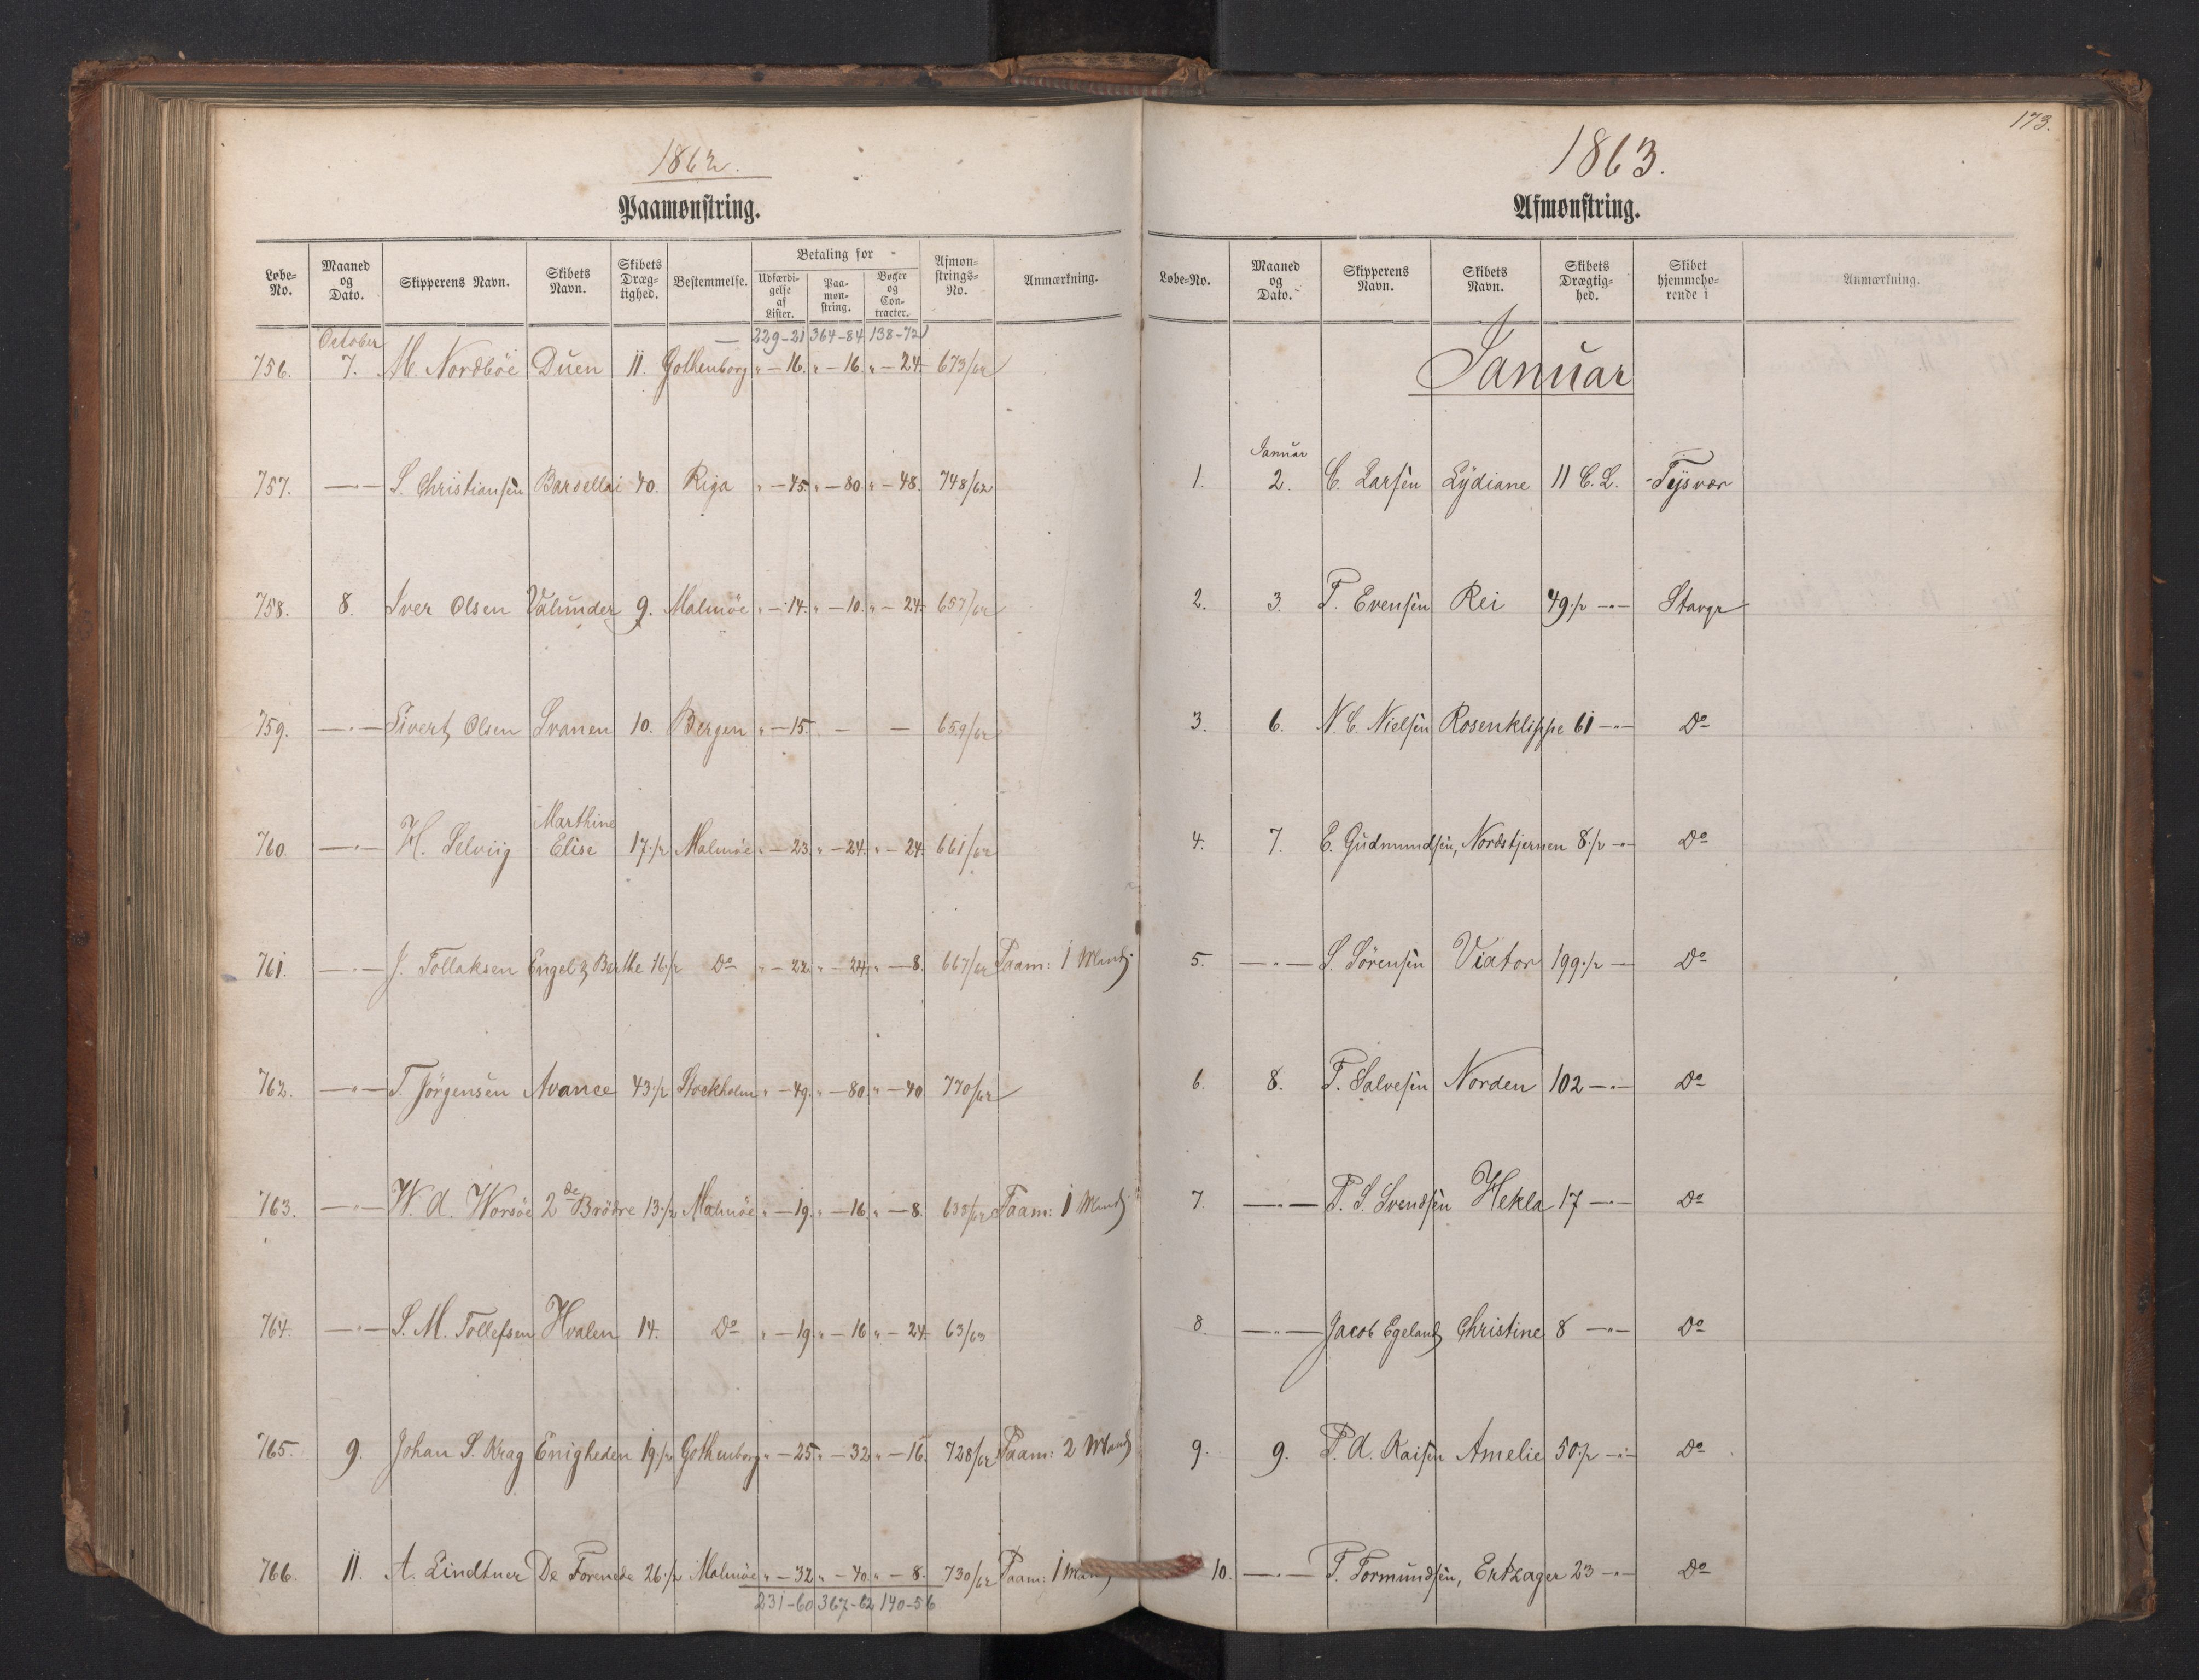 1862.
Paamønstring.
Løbe-No. Maaned og Dato. Skipperens Navn. Skibets Navn. Skibets Drægtighed. Bestemmelse. Betaling for Udfærdigelse af Lister. Paamønstring. Bøger og Contracter. Afmønstrings-No. Anmærkning.
229-21 364-84 138-72
October
756. 7. M. Nordbøe Duen 11. Gothenborg " - 16. " - 16. " - 24. 673/62
757. —"— S. Christiansen Barsellai 40. Riga " - 45. " - 80. " - 48. 748/62
758. 8. Iver Olsen Valunder 9. Malmöe " - 14. " - 10. " - 24. 657/62
759. —"— Sivert Olsen Svanen 10. Bergen " - 15. — — 659/62
760. —"— H. Selviig Marthine Elise 17 1/2 Malmöe " - 23. " - 24. " - 24. 661/62
761. —"— J. Tollaksen Engel & Berthe 16 1/2 Do " - 22. " - 24. " - 8. 667/62 Paam: 1 Mand.
762. —"— T. Jörgensen Avance 43 1/2 Stockholm " - 49. " - 80. " - 40. 770/62
763. —"— W. A. Worsöe 2de Brödre 13 1/2 Malmöe " - 19. " - 16. " - 8. 638/62 Paam: 1 Mand.
764. —"— S. M. Tollefsen Hvalen 14. Do " - 19. " - 16 " - 24. 63/63
765. 9. Johan S. Krag Enigheden 19 1/2 Gothenborg " - 25. " - 32 " - 16. 728/62 Paam: 2 Mand
766. 11. A. Lindtner De Forenede 26 1/2 Malmöe " - 32. " - 40. " - 8. 730/62 Paam: 1 Mand
231-60 367-62 140-56
173.
1863.
Afmønstring.
Løbe-No. Maaned og Dato. Skipperens Navn. Skibets Navn. Skibets Drægtighed. Skibet hjemmehørende i Anmærkning.
Januar
Januar
1. 2. C. Larsen Lydiane 11 C. L. Tysvær
2. 3. T. Evensen Rei 49 1/2 —"— Stavgr
3. 6. N. C. Nielsen Rosenklippe 61 —"— Do
4. 7. E. Gudmundsen, Nordstjernen 8 1/2 —"— Do
5. —"— S. Sörensen Viator 199 1/2 — Do
6. 8. T. Salvesen Norden 102 —"— Do
7. —"— P. S. Svendsen Hekla 17 —"— Do
8. —"— Jacob Egeland Christine 8 —"— Do
9. 9. P. A. Kaisen Amelie 50 1/2 —"— Do
10. —"— T. Tormundsen, Erkzager 23 —"— Do